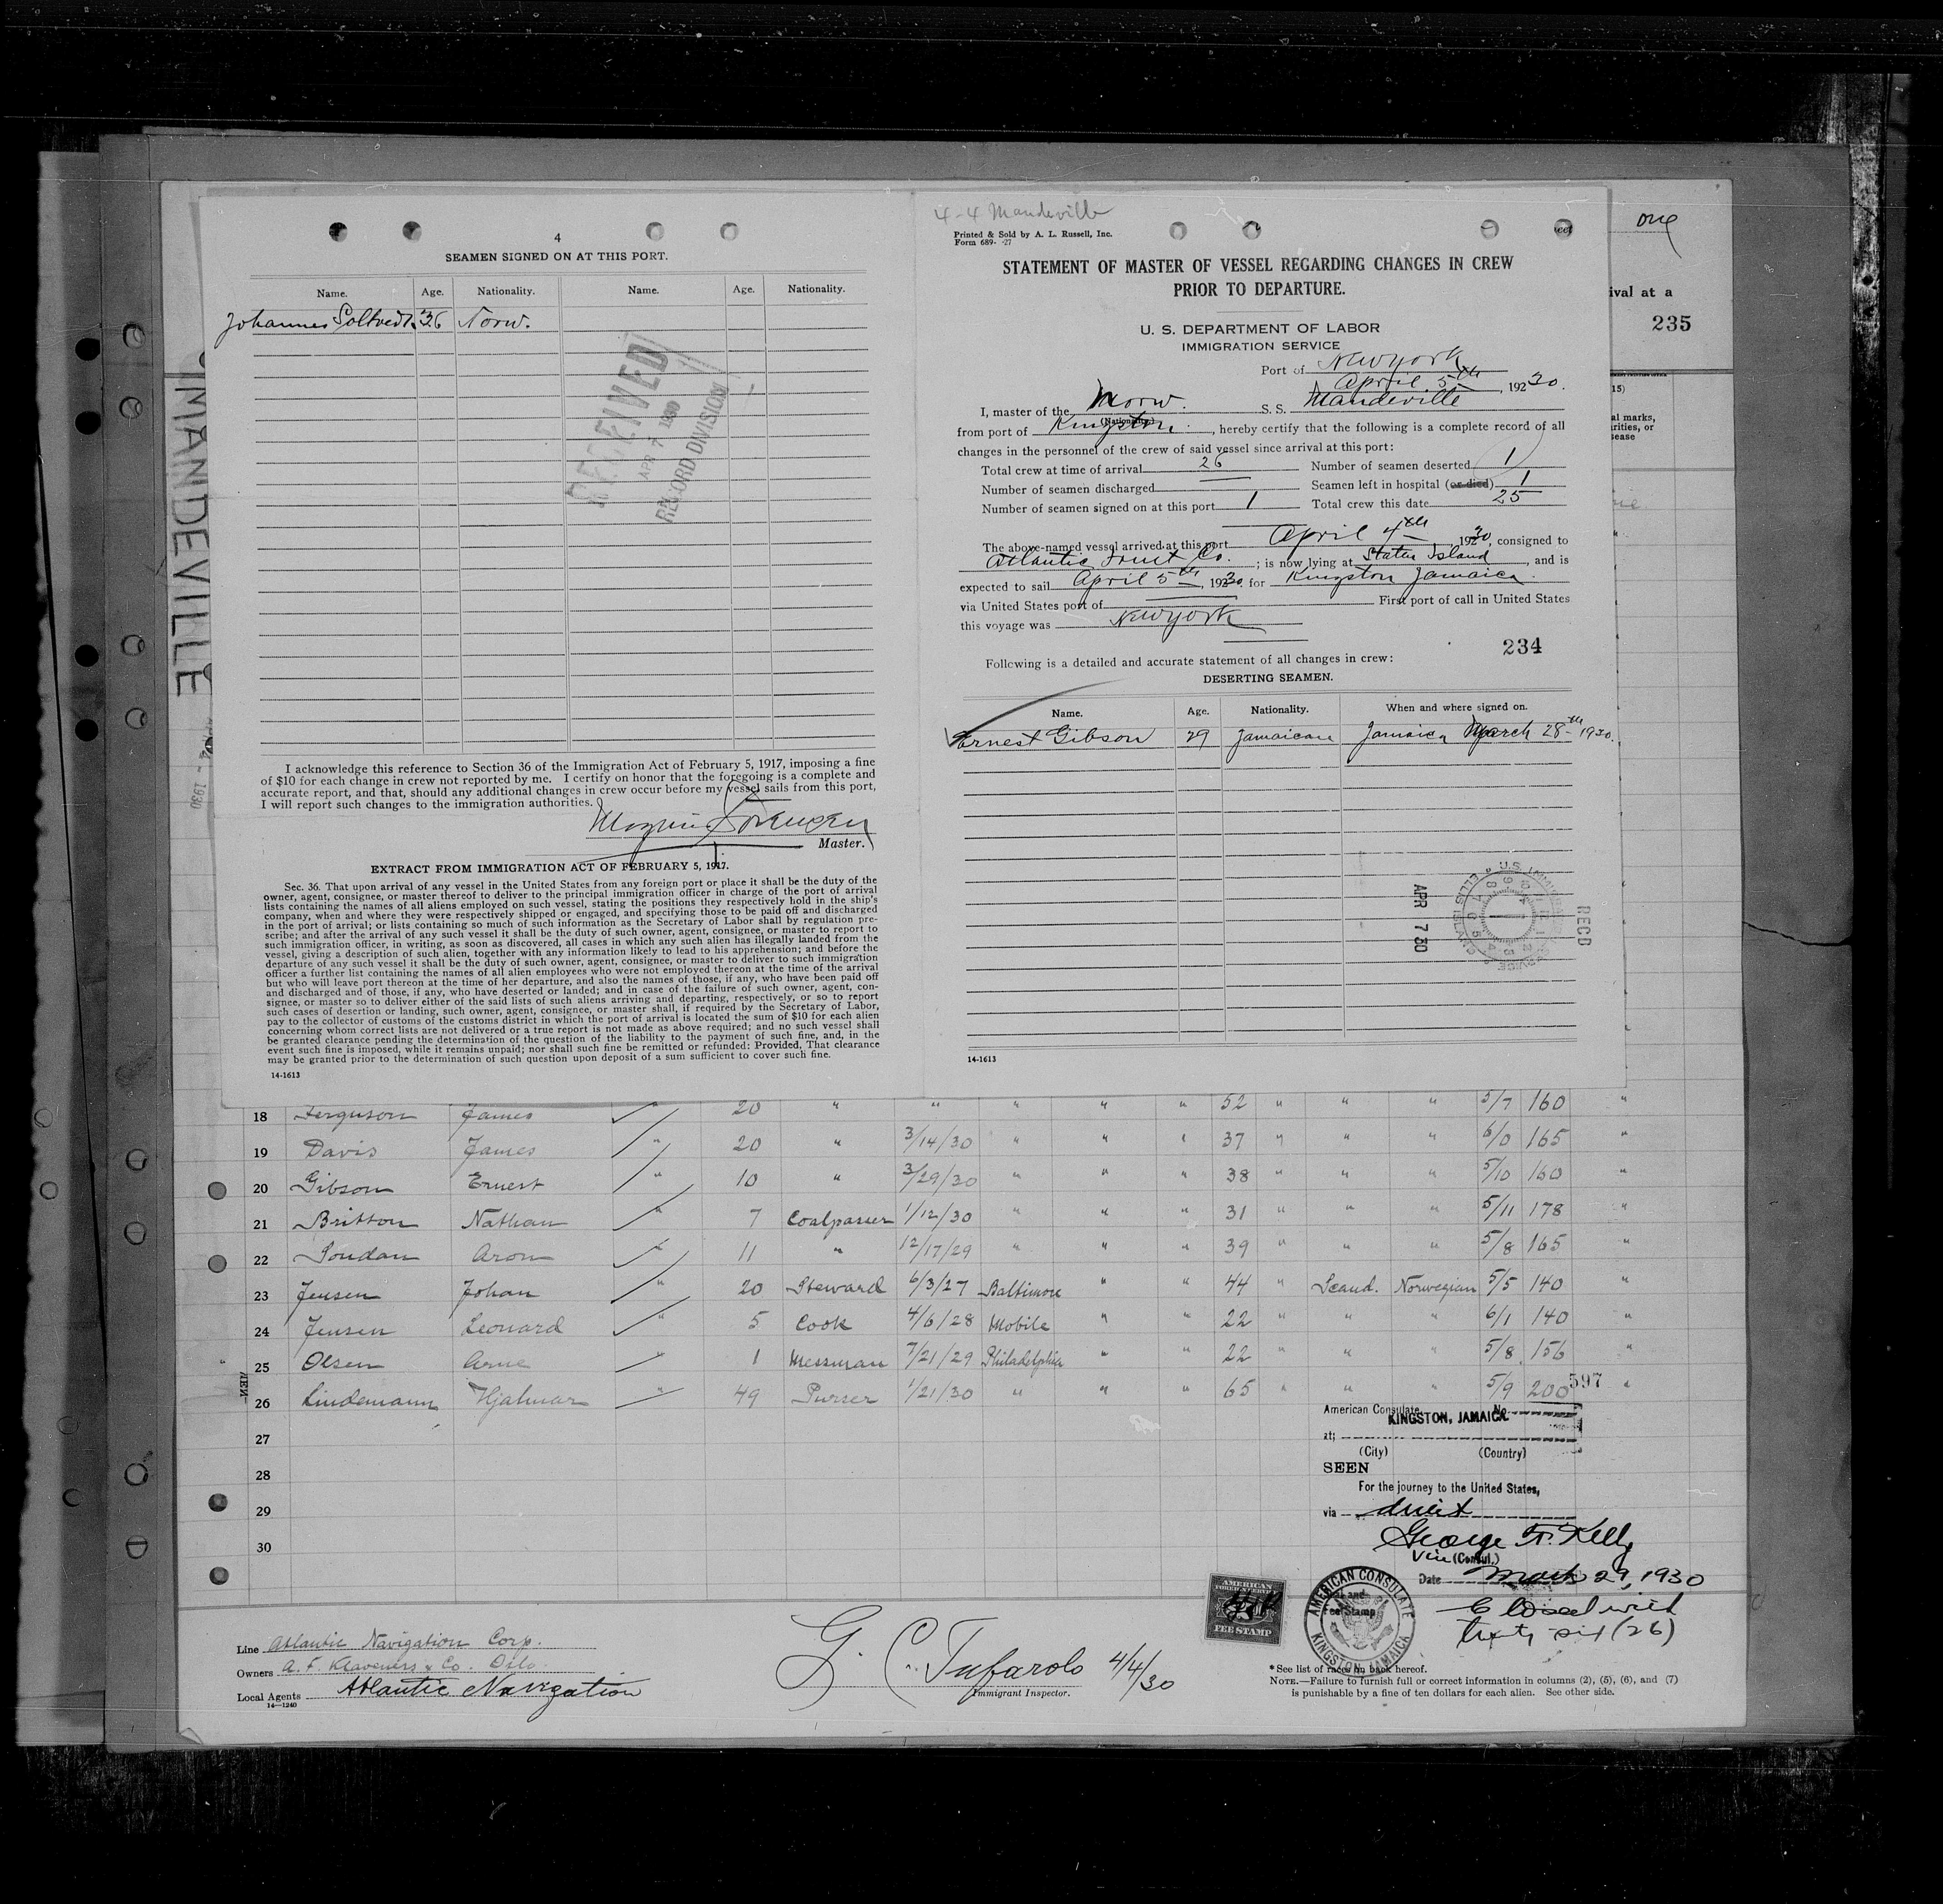 4
SEAMEN SIGNED ON AT THIS PORT.
Name. Age. Nationality. Name. Age. Nationality.
Johannes Soltvedt 36 Norw.
RECEIVED
APR 7 1930
RECORD DIVISION
I acknowledge this reference to Section 36 of the Immigration Act of February 5, 1917, imposing a fine
of $10 for each change in crew not reported by me. I certify on honor that the foregoing is a complete and
accurate report, and that, should any additional changes in crew occur before my vessel sails from this port,
I will report such changes to the immigration authorities.
Master.
EXTRACT FROM IMMIGRATION ACT OF FEBRUARY 5, 1917.
Sec. 36. That upon arrival of any vessel in the United States from any foreign port or place it shall be the duty of the
owner, agent, consignee, or master thereof to deliver to the principal immigration officer in charge of the port of arrival
lists containing the names of all aliens employed on such vessel, stating the positions they respectively hold in the ship's
company, when and where they were respectively shipped or engaged, and specifying those to be paid off and discharged
in the port of arrival; or lists containing so much of such information as the Secretary of Labor shall by regulation pre-
scribe; and after the arrival of any such vessel it shall be the duty of such owner, agent, consignee, or master to report to
such immigration officer, in writing, as soon as discovered, all cases in which any such alien has illegally landed from the
vessel, giving a description of such alien, together with any information likely to lead to his apprehension; and before the
departure of any such vessel it shall be the duty of such owner, agent, consignee, or master to deliver to such immigration
officer a further list containing the names of all alien employees who were not employed thereon at the time of the arrival
but who will leave port thereon at the time of her departure, and also the names of those, if any, who have been paid off
and discharged and of those, if any, who have deserted or landed; and in case of the failure of such owner, agent, con-
signee, or master so to deliver either of the said lists of such aliens arriving and departing, respectively, or so to report
such cases of desertion or landing, such owner, agent, consignee, or master shall, if required by the Secretary of Labor,
pay to the collector of customs of the customs district in which the port of arrival is located the sum of $10 for each alien
concerning whom correct lists are not delivered or a true report is not made as above required; and no such vessel shall
be granted clearance pending the determination of the question of the liability to the payment of such fine, and, in the
event such fine is imposed, while it remains unpaid; nor shall such fine be remitted or refunded: Provided, That clearance
may be granted prior to the determination of such question upon deposit of a sum sufficient to cover such fine.
14-1613
4-4 Mandeville
Printed & Sold by A. L. Russell, Inc.
Form 689- -27
STATEMENT OF MASTER OF VESSEL REGARDING CHANGES IN CREW
PRIOR TO DEPARTURE.
U. S. DEPARTMENT OF LABOR
IMMIGRATION SERVICE
Port of New York
April 5th, 1930.
I, master of the Norw. S. S. Mandeville
(Nationality)
from port of Kingston, hereby certify that the following is a complete record of all
changes in the personnel of the crew of said vessel since arrival at this port:
Total crew at time of arrival 26 Number of seamen deserted 1
Number of seamen discharged Seamen left in hospital (or died) 1
Number of seamen signed on at this port 1 Total crew this date 25
The above-named vessel arrived at this port April 4th, 1930, consigned to
Atlantic Fruit Co.; is now lying at Staten Island, and is
expected to sail April 5th, 1930. for Kingston Jamaica.
via United States port of First port of call in United States
this voyage was New York
234
Following is a detailed and accurate statement of all changes in crew:
DESERTING SEAMEN.
Name. Age. Nationality. When and where signed on.
Ernest Gibson 29 Jamaican Jamaica March 28th 1930.
RECD
APR 7 30
ELLIS ISLAND
14-1613
one
ival at a
235
15)
al marks,
rities, or
sease
MANDEVILLE
18 Ferguson James " 20 " " " " " 52 " " " 5/7 160 "
19 Davis James " 20 " 3/14/30 " " " 37 " " " 6/0 165 "
20 Gibson Ernest " 10 " 3/29/30 " " " 38 " " " 5/10 160 "
21 Britton Nathan " 7 Coalpasser 1/12/30 " " " 31 " " " 5/11 178 "
22 Soudan Aron " 11 " 12/17/29 " " " 39 " " " 5/8 165 "
23 Jensen Johan " 20 Steward 6/3/27 Baltimore " " 44 " Scand. Norwegian 5/5 140 "
24 Jensen Leonard " 5 Cook 4/6/28 Mobile " " 22 " " " 6/1 140 "
25 Olsen Arne " 1 Messman 7/21/29 Philadelphia " " 22 " " " 5/8 156 "
26 Lindemann Hjalmar " 49 Purser 1/21/30 " " " 65 " " " 5/9 200 "
27
28
29
30
597
American Consulate No.
KINGSTON, JAMAICA.
at:
(City) (Country)
SEEN
For the journey to the United States,
via direct
George F. Kelly
Vice (Consul.)
Date March 29, 1930
Closed with
twenty six (26)
AMERICAN
FOREIGN SERVICE
FEE STAMP
AMERICAN CONSULATE
KINGSTON, JAMAICA
Line Atlantic Navigation Corp.
Owners A. F. Klaveness & Co. Oslo.
Local Agents Atlantic Navigation
14-1240
G. C. Tufarolo 4/4/30
Immigrant Inspector.
*See list of races on back hereof.
NOTE.—Failure to furnish full or correct information in columns (2), (5), (6), and (7)
is punishable by a fine of ten dollars for each alien. See other side.